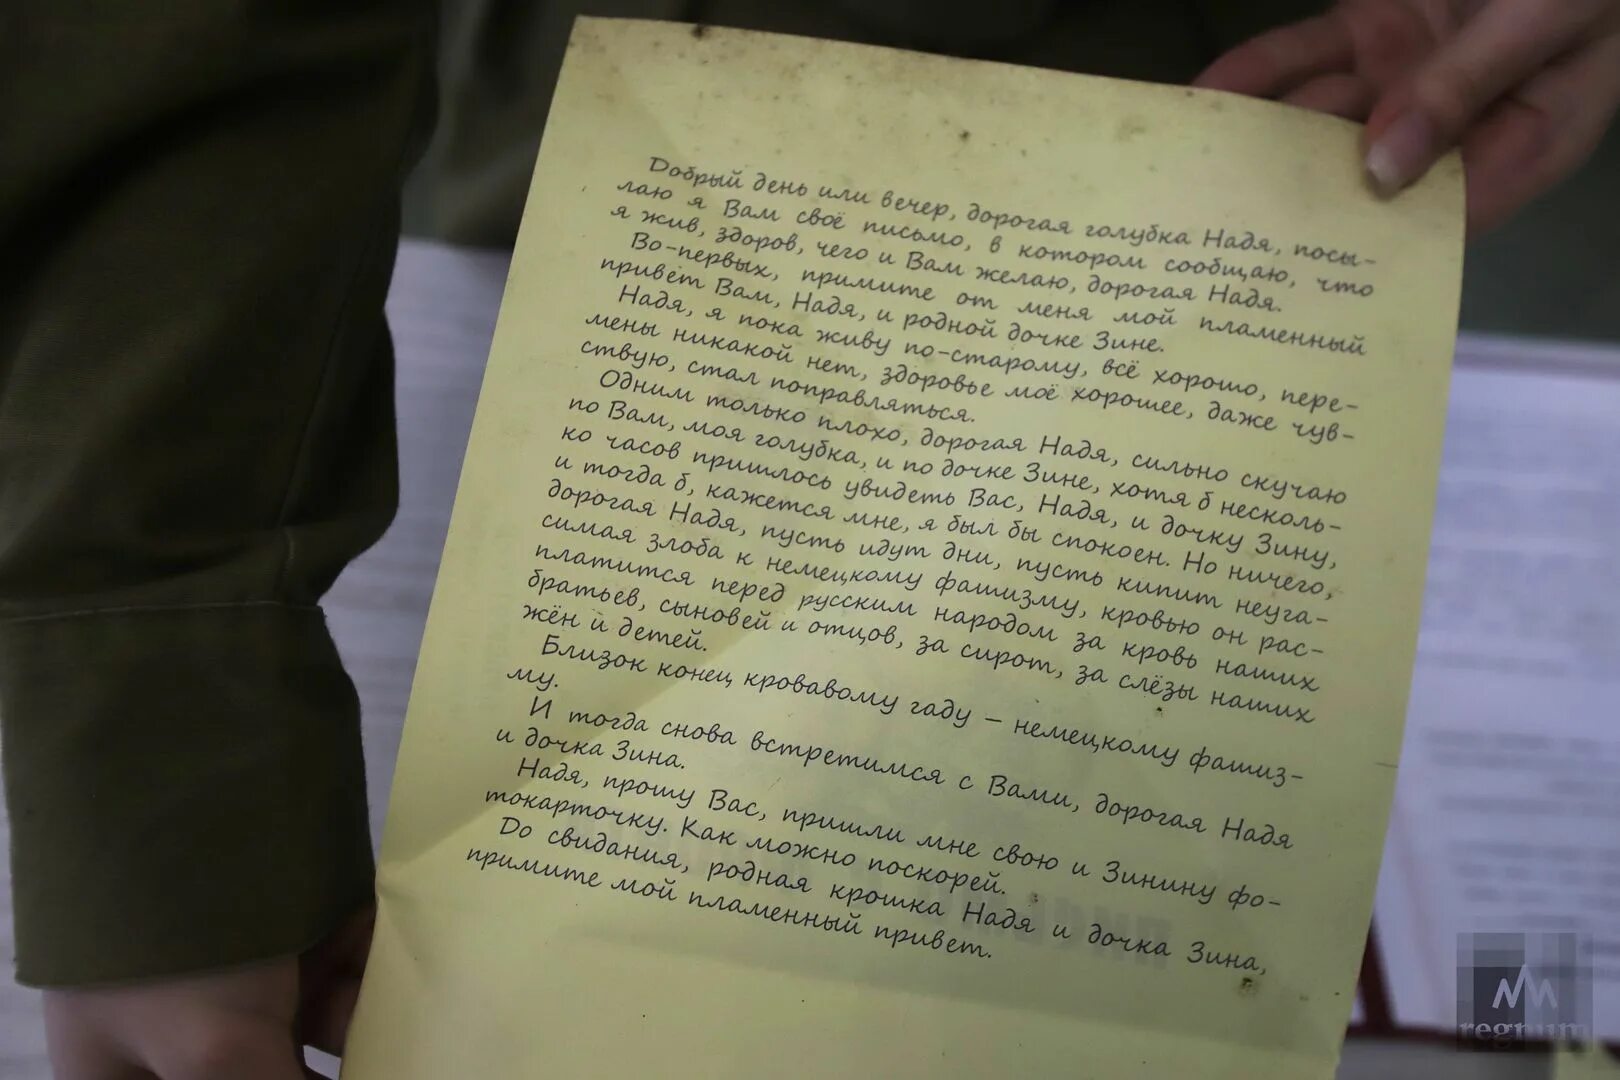 Добрый день или вечер, дорогая голубка Надя, посы-
лаю я Вам своё письмо, в котором сообщаю, что
я жив, здоров, чего и Вам желаю, дорогая Надя.
Во-первых, примите от меня мой пламенный
привет Вам, Надя, и родной дочке Зине.
Надя, я пока живу по-старому, всё хорошо, пере-
мены никакой нет, здоровье моё хорошее, даже чув-
ствую, стал поправляться.
Одним только плохо, дорогая Надя, сильно скучаю
по Вам, моя голубка, и по дочке Зине, хотя б несколь-
ко часов пришлось увидеть Вас, Надя, и дочку Зину,
и тогда б, кажется мне, я был бы спокоен. Но ничего,
дорогая Надя, пусть идут дни, пусть кипит неуга-
симая злоба к немецкому фашизму, кровью он рас-
платится перед русским народом за кровь наших
братьев, сыновей и отцов, за сирот, за слёзы наших
жён и детей.
Близок конец кровавому гаду – немецкому фашиз-
му.
И тогда снова встретимся с Вами, дорогая Надя
и дочка Зина.
Надя, прошу Вас, пришли мне свою и Зинину фо-
токарточку. Как можно поскорей.
До свидания, родная крошка Надя и дочка Зина,
примите мой пламенный привет.
regnum